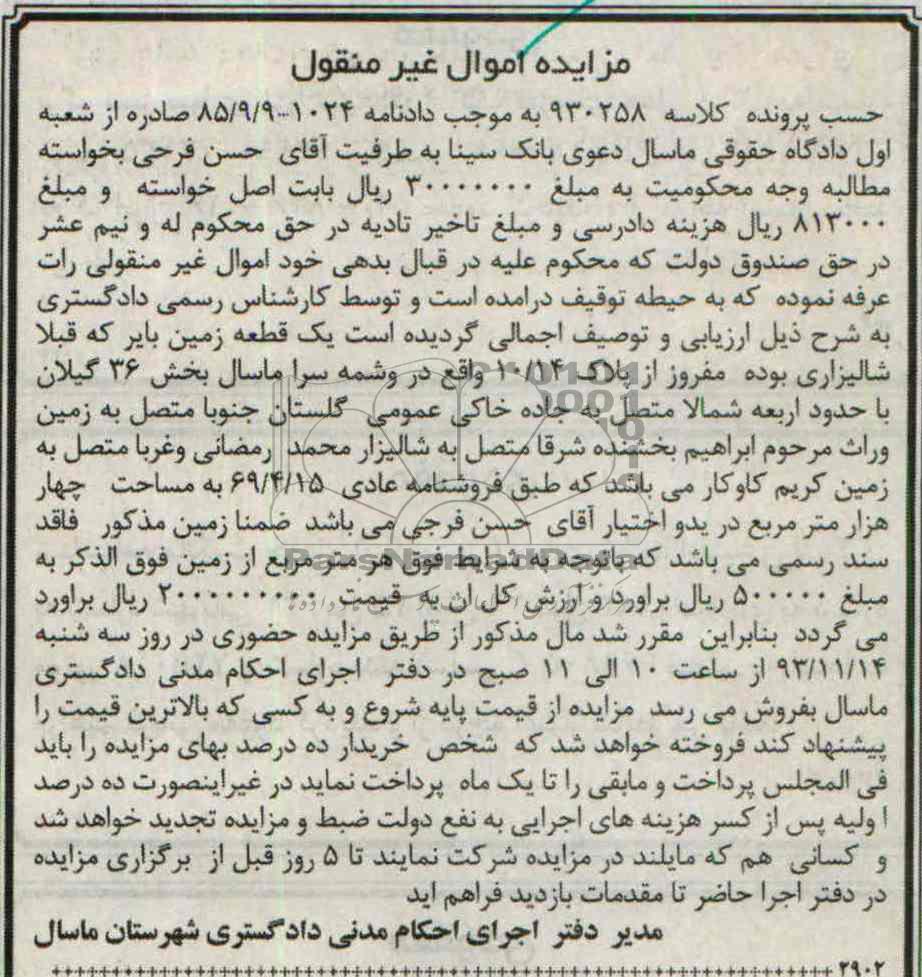 مزایده اموال غیر منقول
حسب پرونده کلاسه ۹۳۰۲۵۸ به موجب دادنامه ۱۰۲۴-۸۵/۹/۹ صادره از شعبه
اول دادگاه حقوقی ماسال دعوی بانک سینا به طرفیت آقای حسن فرحی بخواسته
مطالبه وجه محکومیت به مبلغ ۳۰۰۰۰۰۰۰ ریال بابت اصل خواسته و مبلغ
۸۱۳۰۰۰ ریال هزینه دادرسی و مبلغ تاخیر تادیه در حق محکوم له و نیم عشر
در حق صندوق دولت که محکوم علیه در قبال بدهی خود اموال غیر منقولی رات
عرفه نموده که به حیطه توقیف درامده است و توسط کارشناس رسمی دادگستری
به شرح ذیل ارزیابی و توصیف اجمالی گردیده است یک قطعه زمین بایر که قبلا
شالیزاری بوده مفروز از پلاک ۱۰/۱۴ واقع در وشمه سرا ماسال بخش ۳۶ گیلان
با حدود اربعه شمالا متصل به جاده خاکی عمومی گلستان جنوبا متصل به زمین
وراث مرحوم ابراهیم بخشنده شرقا متصل به شالیزار محمد رمضانی وغربا متصل به
زمین کریم کاوکار می باشد که طبق فروشنامه عادی ۶۹/۴/۱۵ به مساحت چهار
هزار متر مربع در یدو اختیار آقای حسن فرجی می باشد ضمنا زمین مذکور فاقد
سند رسمی می باشد که باتوجه به شرایط فوق هر متر مربع از زمین فوق الذکر به
مبلغ ۵۰۰۰۰۰ ریال براورد و ارزش کل ان به قیمت ۲۰۰۰۰۰۰۰۰۰ ریال براورد
می گردد بنابراین مقرر شد مال مذکور از طریق مزایده حضوری در روز سه شنبه
۹۳/۱۱/۱۴ از ساعت ۱۰ الی ۱۱ صبح در دفتر اجرای احکام مدنی دادگستری
ماسال بفروش می رسد مزایده از قیمت پایه شروع و به کسی که بالاترین قیمت را
پیشنهاد کند فروخته خواهد شد که شخص خریدار ده درصد بهای مزایده را باید
فی المجلس پرداخت و مابقی را تا یک ماه پرداخت نماید در غیراینصورت ده درصد
اولیه پس از کسر هزینه های اجرایی به نفع دولت ضبط و مزایده تجدید خواهد شد
و کسانی هم که مایلند در مزایده شرکت نمایند تا ۵ روز قبل از برگزاری مزایده
در دفتر اجرا حاضر تا مقدمات بازدید فراهم اید
مدیر دفتر اجرای احکام مدنی دادگستری شهرستان ماسال
۲۹۰۲
ParsNamadData